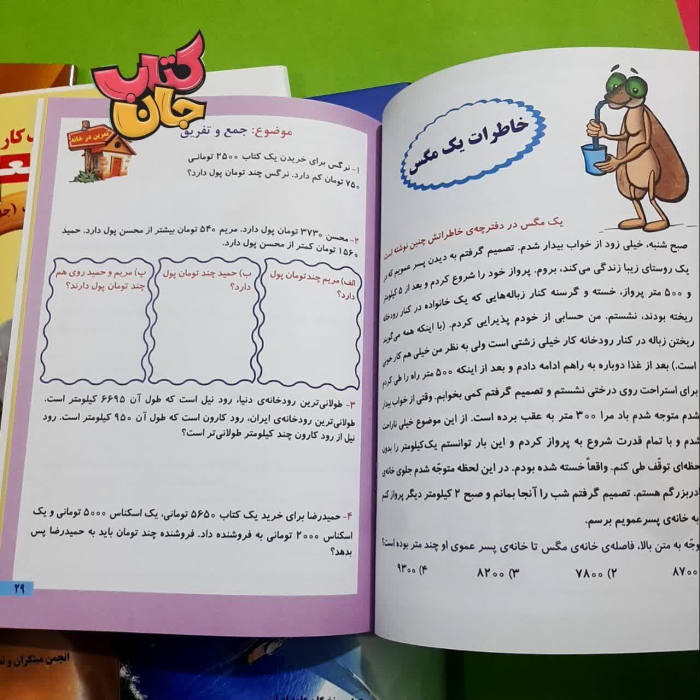 کتاب
جان
تمرین در خانه
موضوع: جمع و تفریق
۱- نرگس برای خریدن یک کتاب ۲۵۰۰ تومانی
۷۵۰ تومان کم دارد. نرگس چند تومان پول دارد؟
۲- محسن ۳۷۳۰ تومان پول دارد. مریم ۵۴۰ تومان بیشتر از محسن پول دارد. حمید
۱۵۶۰ تومان کمتر از محسن پول دارد.
الف) مریم چند تومان پول
دارد؟
ب) حمید چند تومان پول
دارد؟
پ) مریم و حمید روی هم
چند تومان پول دارند؟
۳- طولانی‌ترین رودخانه‌ی دنیا، رود نیل است که طول آن ۶۶۹۵ کیلومتر است.
طولانی‌ترین رودخانه‌ی ایران، رود کارون است که طول آن ۹۵۰ کیلومتر است. رود
نیل از رود کارون چند کیلومتر طولانی‌تر است؟
۴- حمیدرضا برای خرید یک کتاب ۵۶۵۰ تومانی، یک اسکناس ۵۰۰۰ تومانی و یک
اسکناس ۲۰۰۰ تومانی به فروشنده داد. فروشنده چند تومان باید به حمیدرضا پس
بدهد؟
۲۹
خاطرات یک مگس
یک مگس در دفترچه‌ی خاطراتش چنین نوشته است
صبح شنبه، خیلی زود از خواب بیدار شدم. تصمیم گرفتم به دیدن پسر عمویم که در
یک روستای زیبا زندگی می‌کند، بروم. پرواز خود را شروع کردم و بعد از ۵ کیلومتر
و ۵۰۰ متر پرواز، خسته و گرسنه کنار زباله‌هایی که یک خانواده در کنار رودخانه
ریخته بودند، نشستم. من حسابی از خودم پذیرایی کردم. (با اینکه همه می‌گویند
ریختن زباله در کنار رودخانه کار خیلی زشتی است ولی به نظر من خیلی هم کار خوبی
است.) بعد از غذا دوباره به راهم ادامه دادم و بعد از اینکه ۵۰۰ متر راه را طی کردم
برای استراحت روی درختی نشستم و تصمیم گرفتم کمی بخوابم. وقتی از خواب بیدار
شدم متوجه شدم باد مرا ۳۰۰ متر به عقب برده است. از این موضوع خیلی ناراحت
شدم و با تمام قدرت شروع به پرواز کردم و این بار توانستم یک‌کیلومتر را بدون
حظه‌ای توقّف طی کنم. واقعاً خسته شده بودم. در این لحظه متوجّه شدم جلوی خانه‌ی
دربزرگم هستم. تصمیم گرفتم شب را آنجا بمانم و صبح ۲ کیلومتر دیگر پرواز کنم
به خانه‌ی پسرعمویم برسم.
وجّه به متن بالا، فاصله‌ی خانه‌ی مگس تا خانه‌ی پسر عموی او چند متر بوده است؟
۸۷۰۰ ۲) ۷۸۰۰ ۳) ۸۲۰۰ ۴) ۹۳۰۰